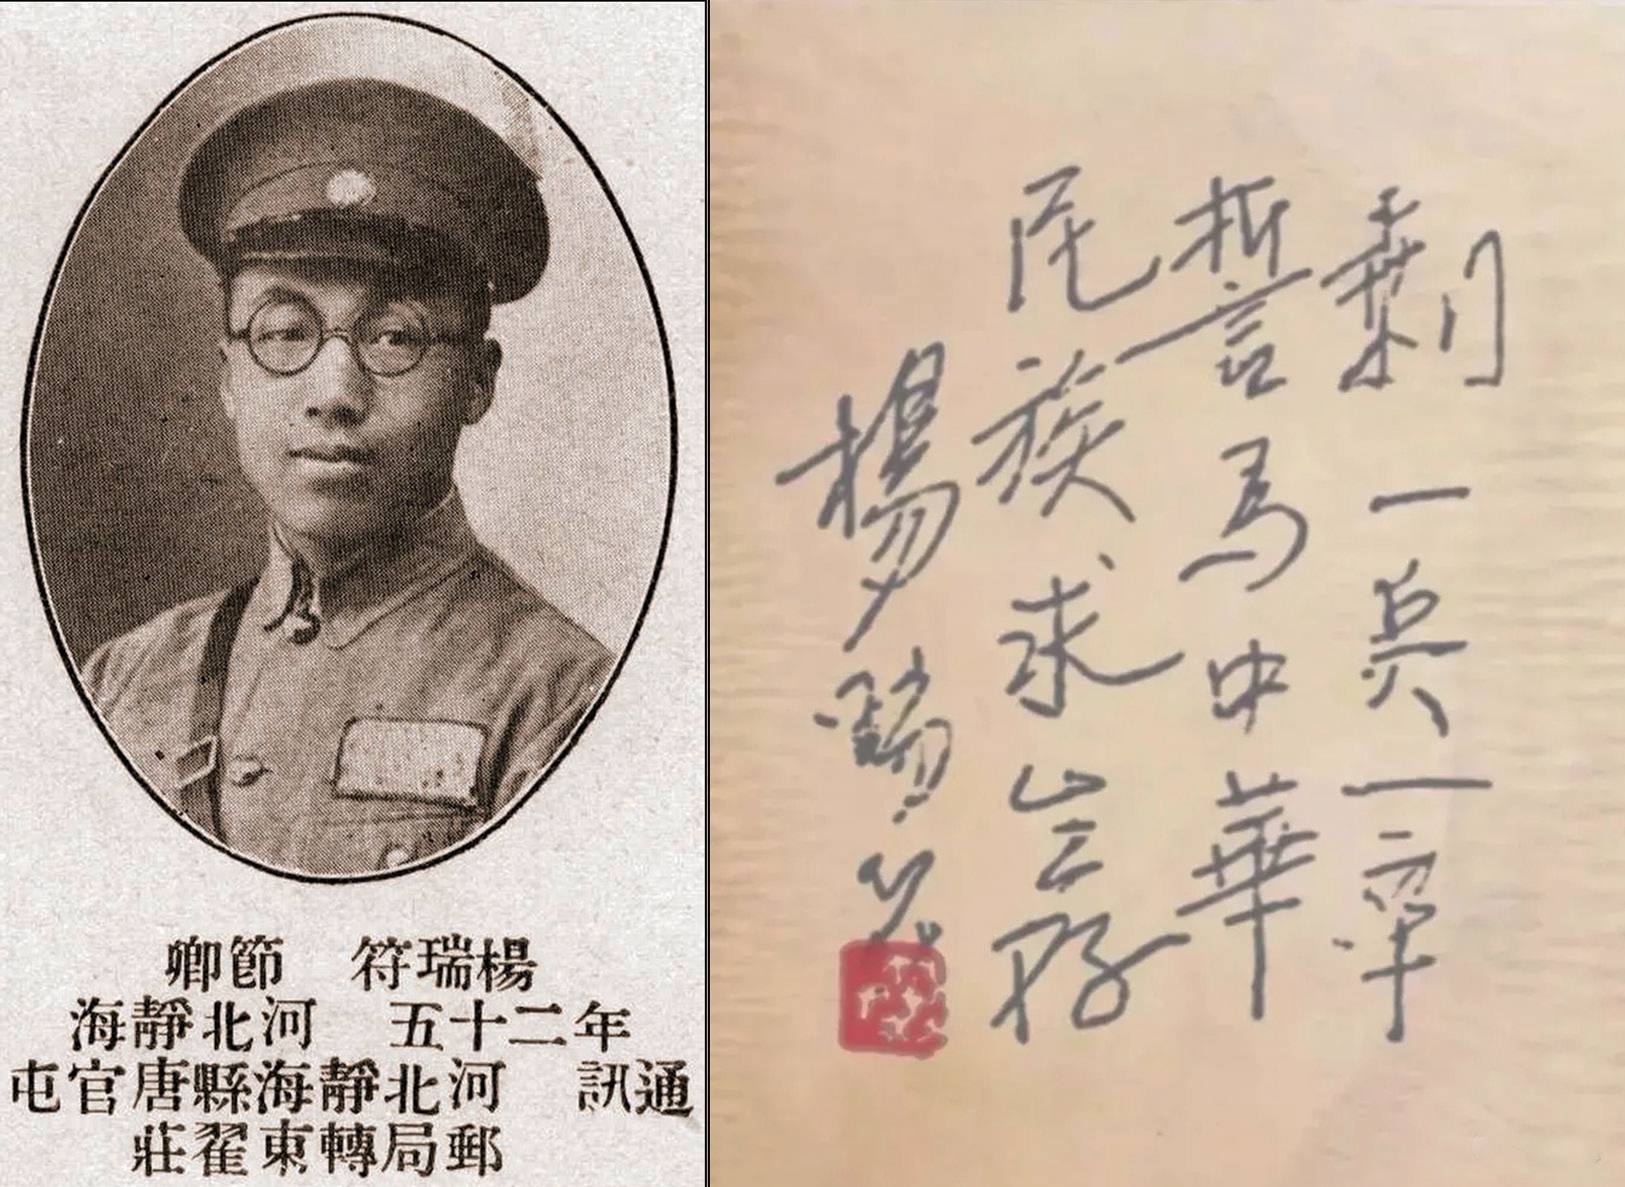 楊瑞符 節卿
年二十五 河北靜海
通訊 河北靜海縣唐官屯
郵局轉東翟莊
剩一兵一卒
誓為中華
民族求生存
楊瑞符